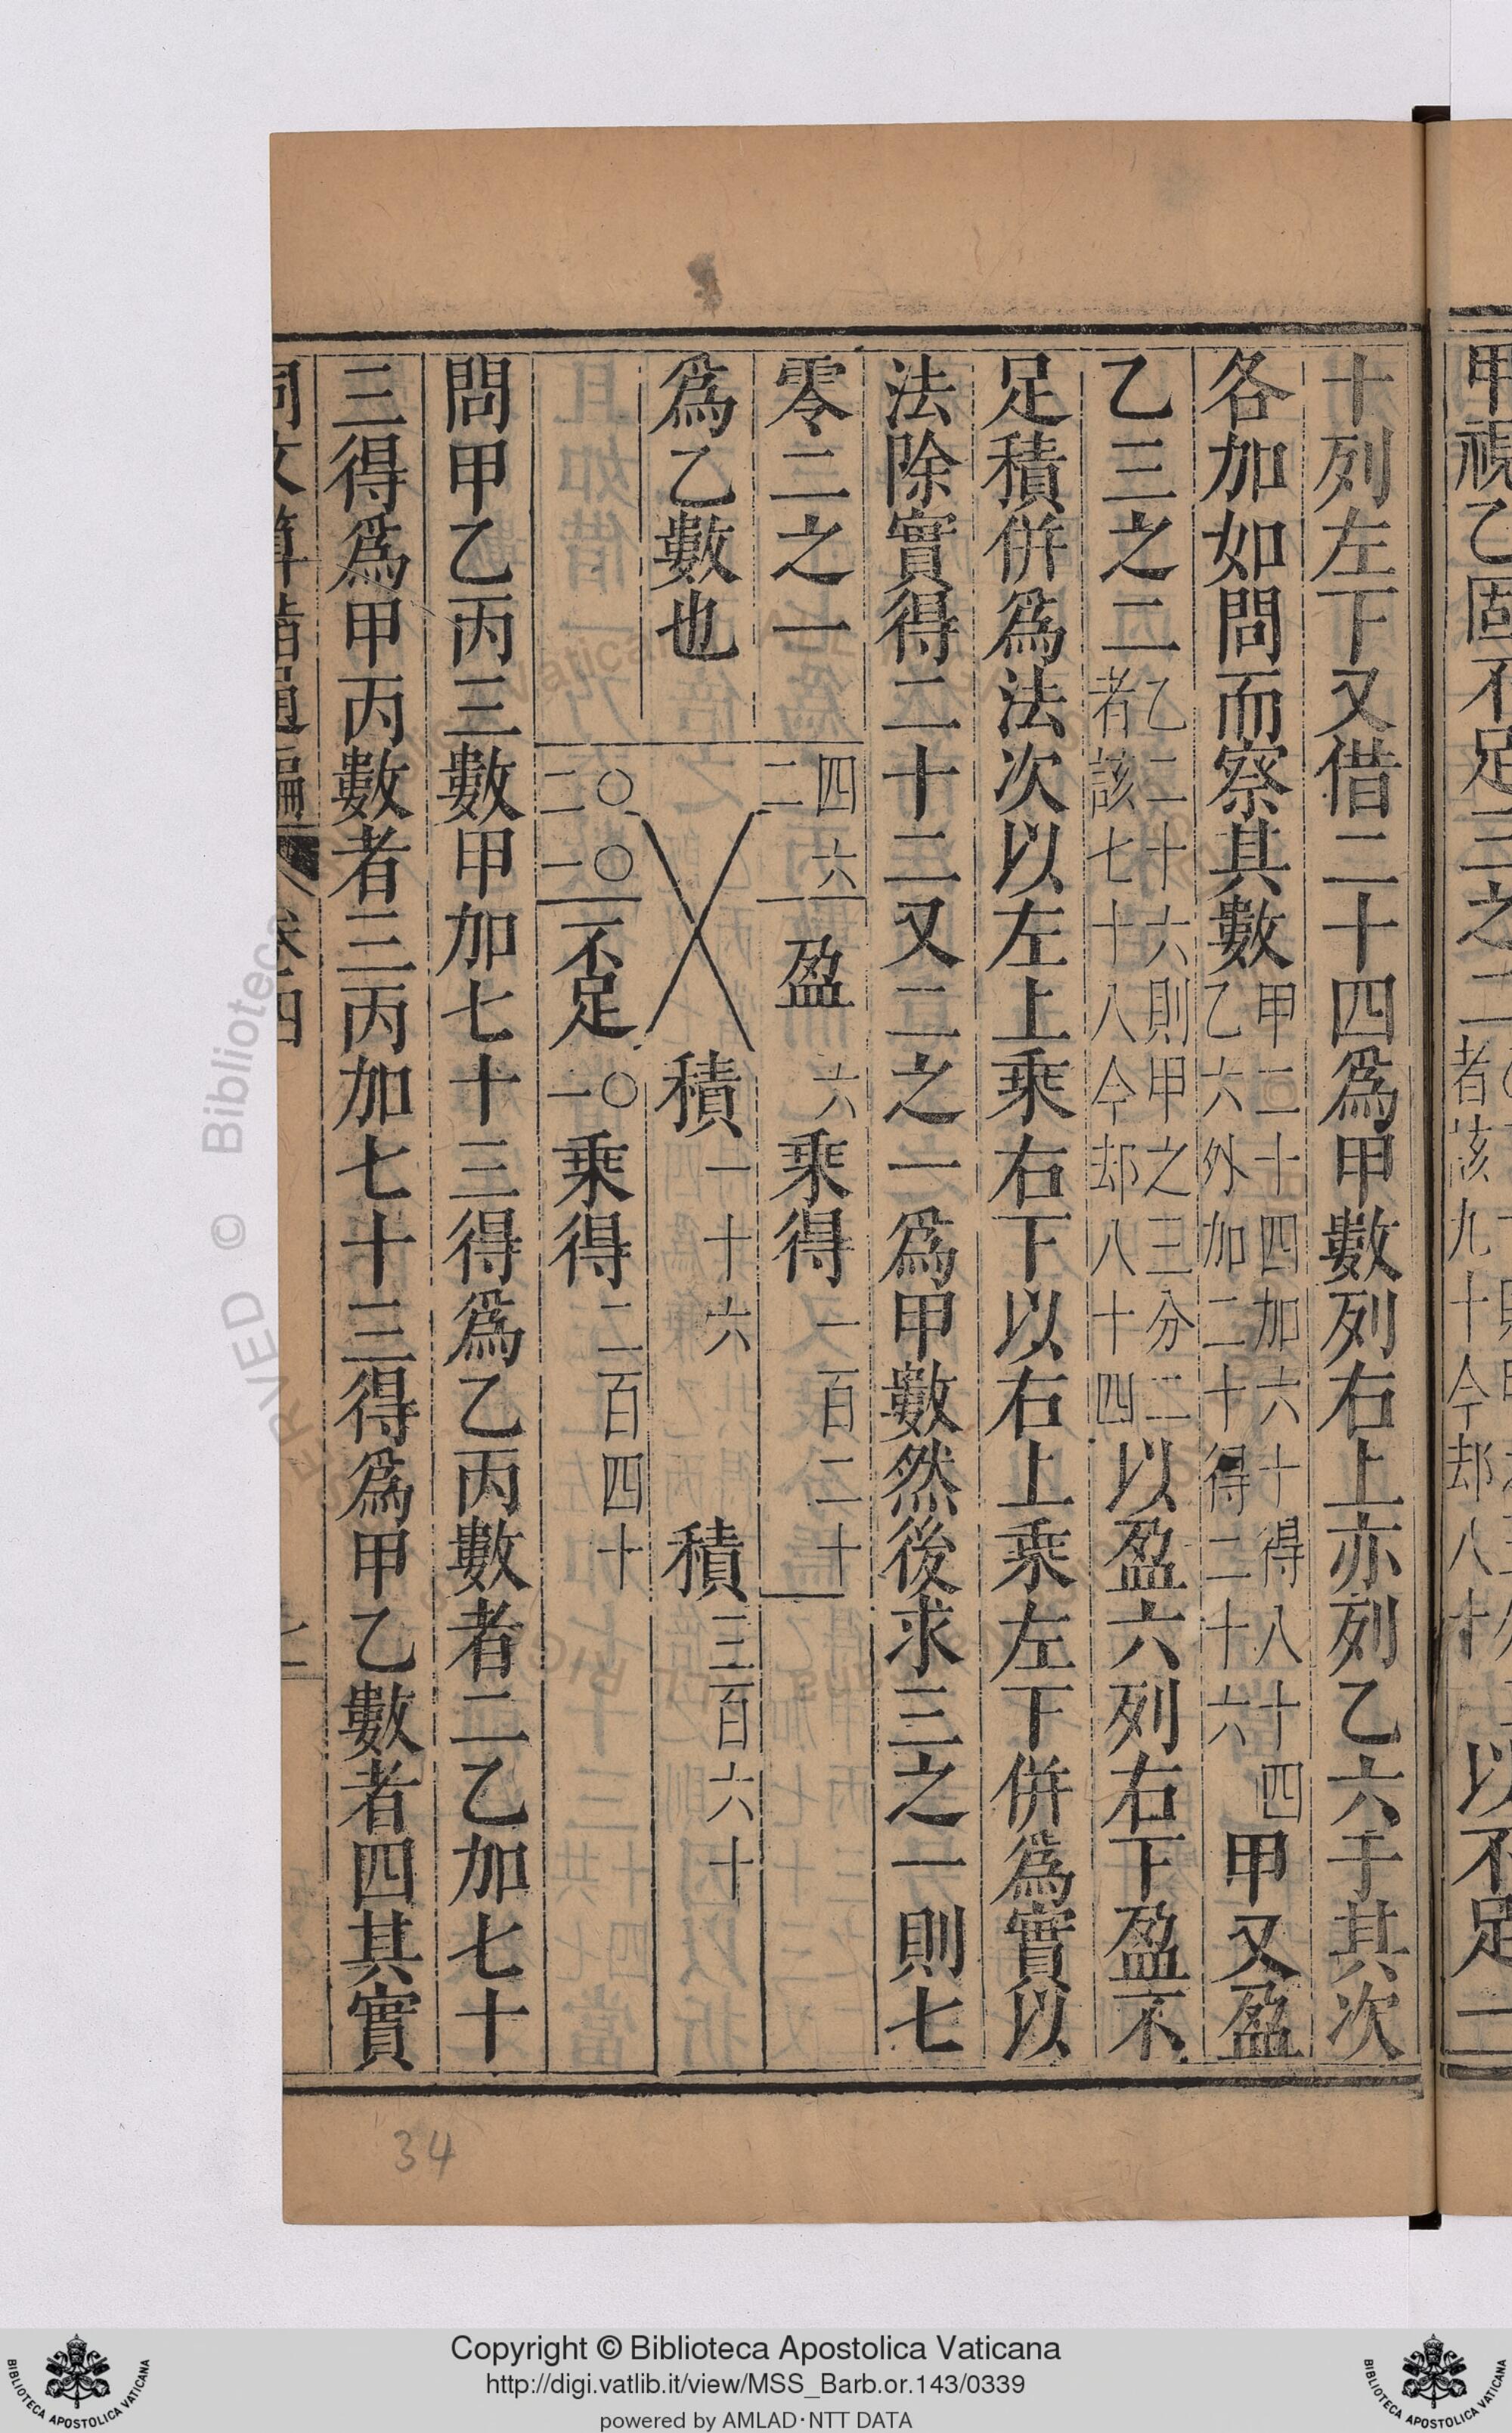 甲視乙固不足三之二者該九十今却八十以不足一
十列左下又借二十四爲甲數列右上亦列乙六于其次
各加如問而察其數甲二十四加六十得八十四乙六外加二十得二十六甲又盈
乙三之二乙二十六則甲之三分二者該七十八今却八十四以盈六列右下盈不
足積併爲法次以左上乘右下以右上乘左下併爲實以
法除實得二十二又二之一爲甲數然後求三之一則七
零二之一 二四 六 盈 六 乘得 一百二十
爲乙數也 積 一十六 積 三百六十
二〇 一〇 不足 一〇 乘得 二百四十
問甲乙丙三數甲加七十三得爲乙丙數者二乙加七十
三得爲甲丙數者三丙加七十三得爲甲乙數者四其實
同文算指通編 卷四
34
Copyright © Biblioteca Apostolica Vaticana
http://digi.vatlib.it/view/MSS_Barb.or.143/0339
powered by AMLAD·NTT DATA